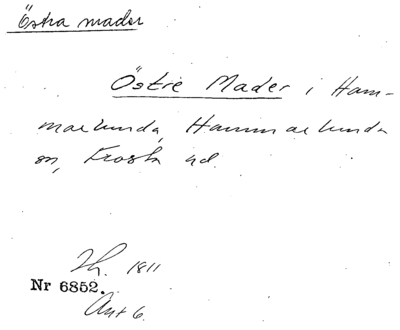 Östra mader
Östre Mader i Ham-
marlunda, Hammarlunda
sn, Frosta hd.
Lh. 1811
Nr 6852.
Akt 6.